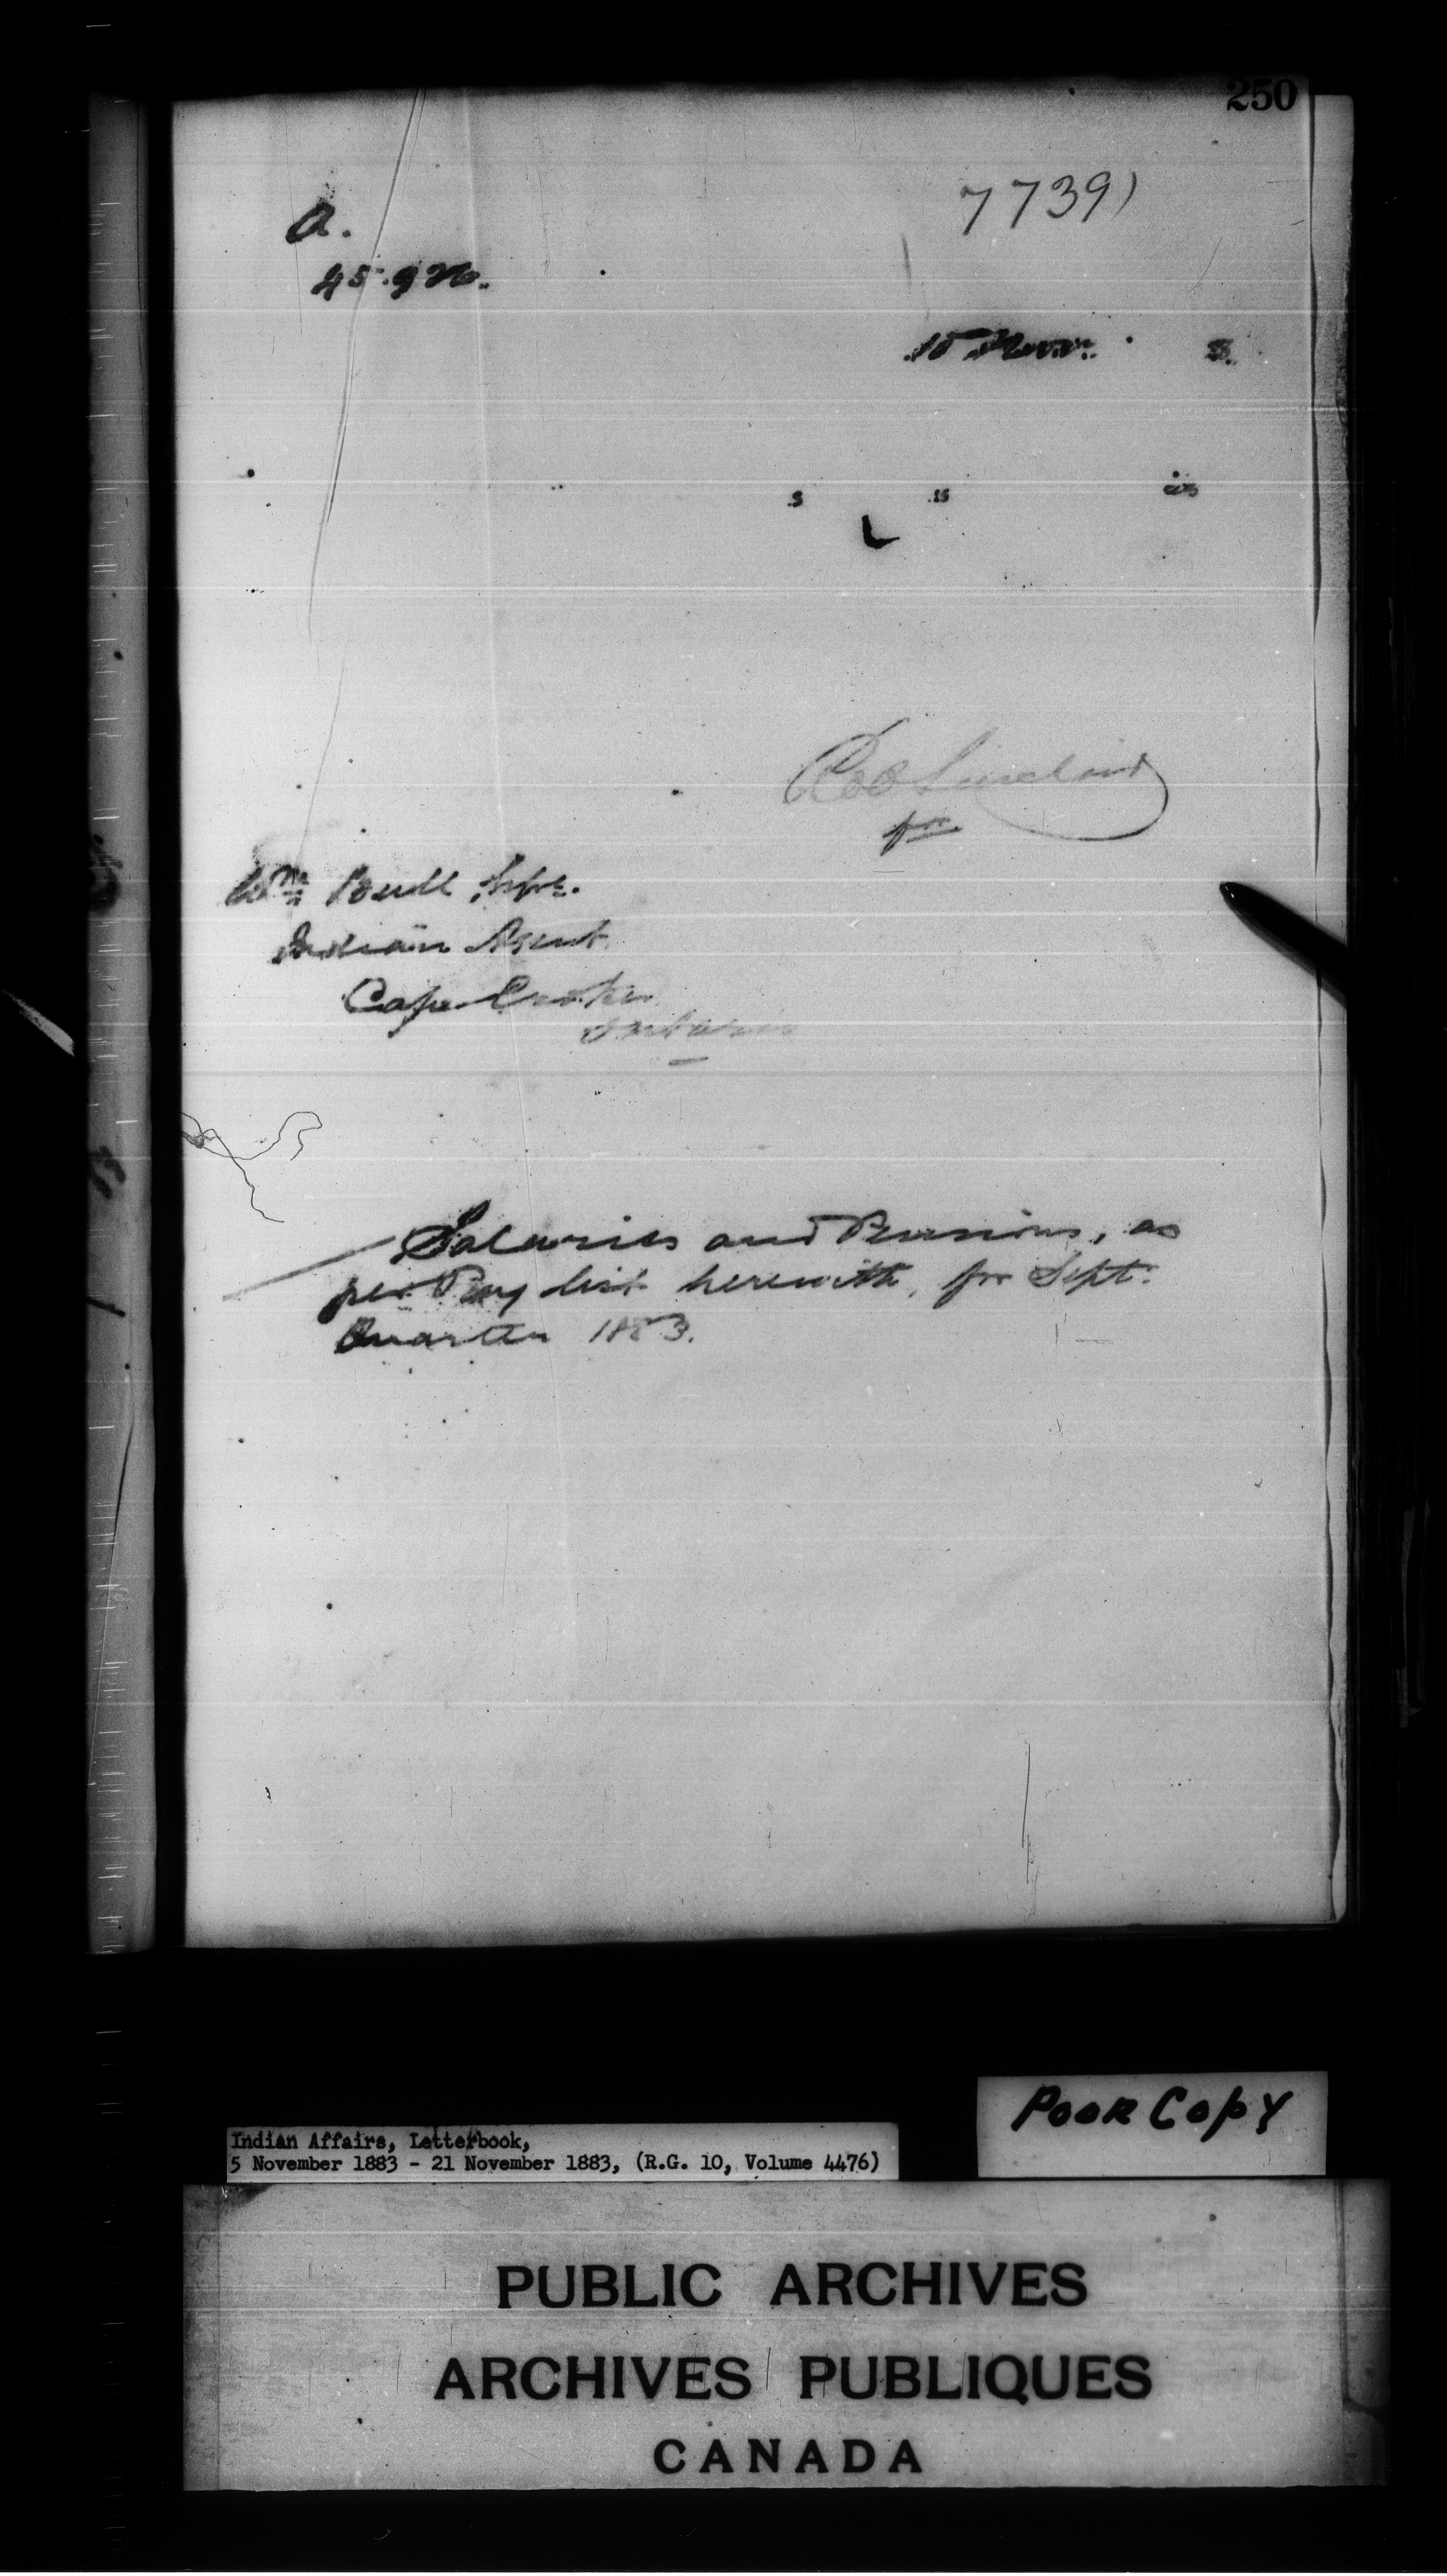 250
7739)
a.
45.926.
15 Novr. 3.
for
Wm Bull, Esqre.
Indian Agent
Cape Croker
Ontario
Salaries and Pensions, as
per Pay list herewith, for Sept.
Quarter 1883.
POOR COPY
Indian Affairs, Letterbook,
5 November 1883 - 21 November 1883, (R.G. 10, Volume 4476)
PUBLIC ARCHIVES
ARCHIVES PUBLIQUES
CANADA